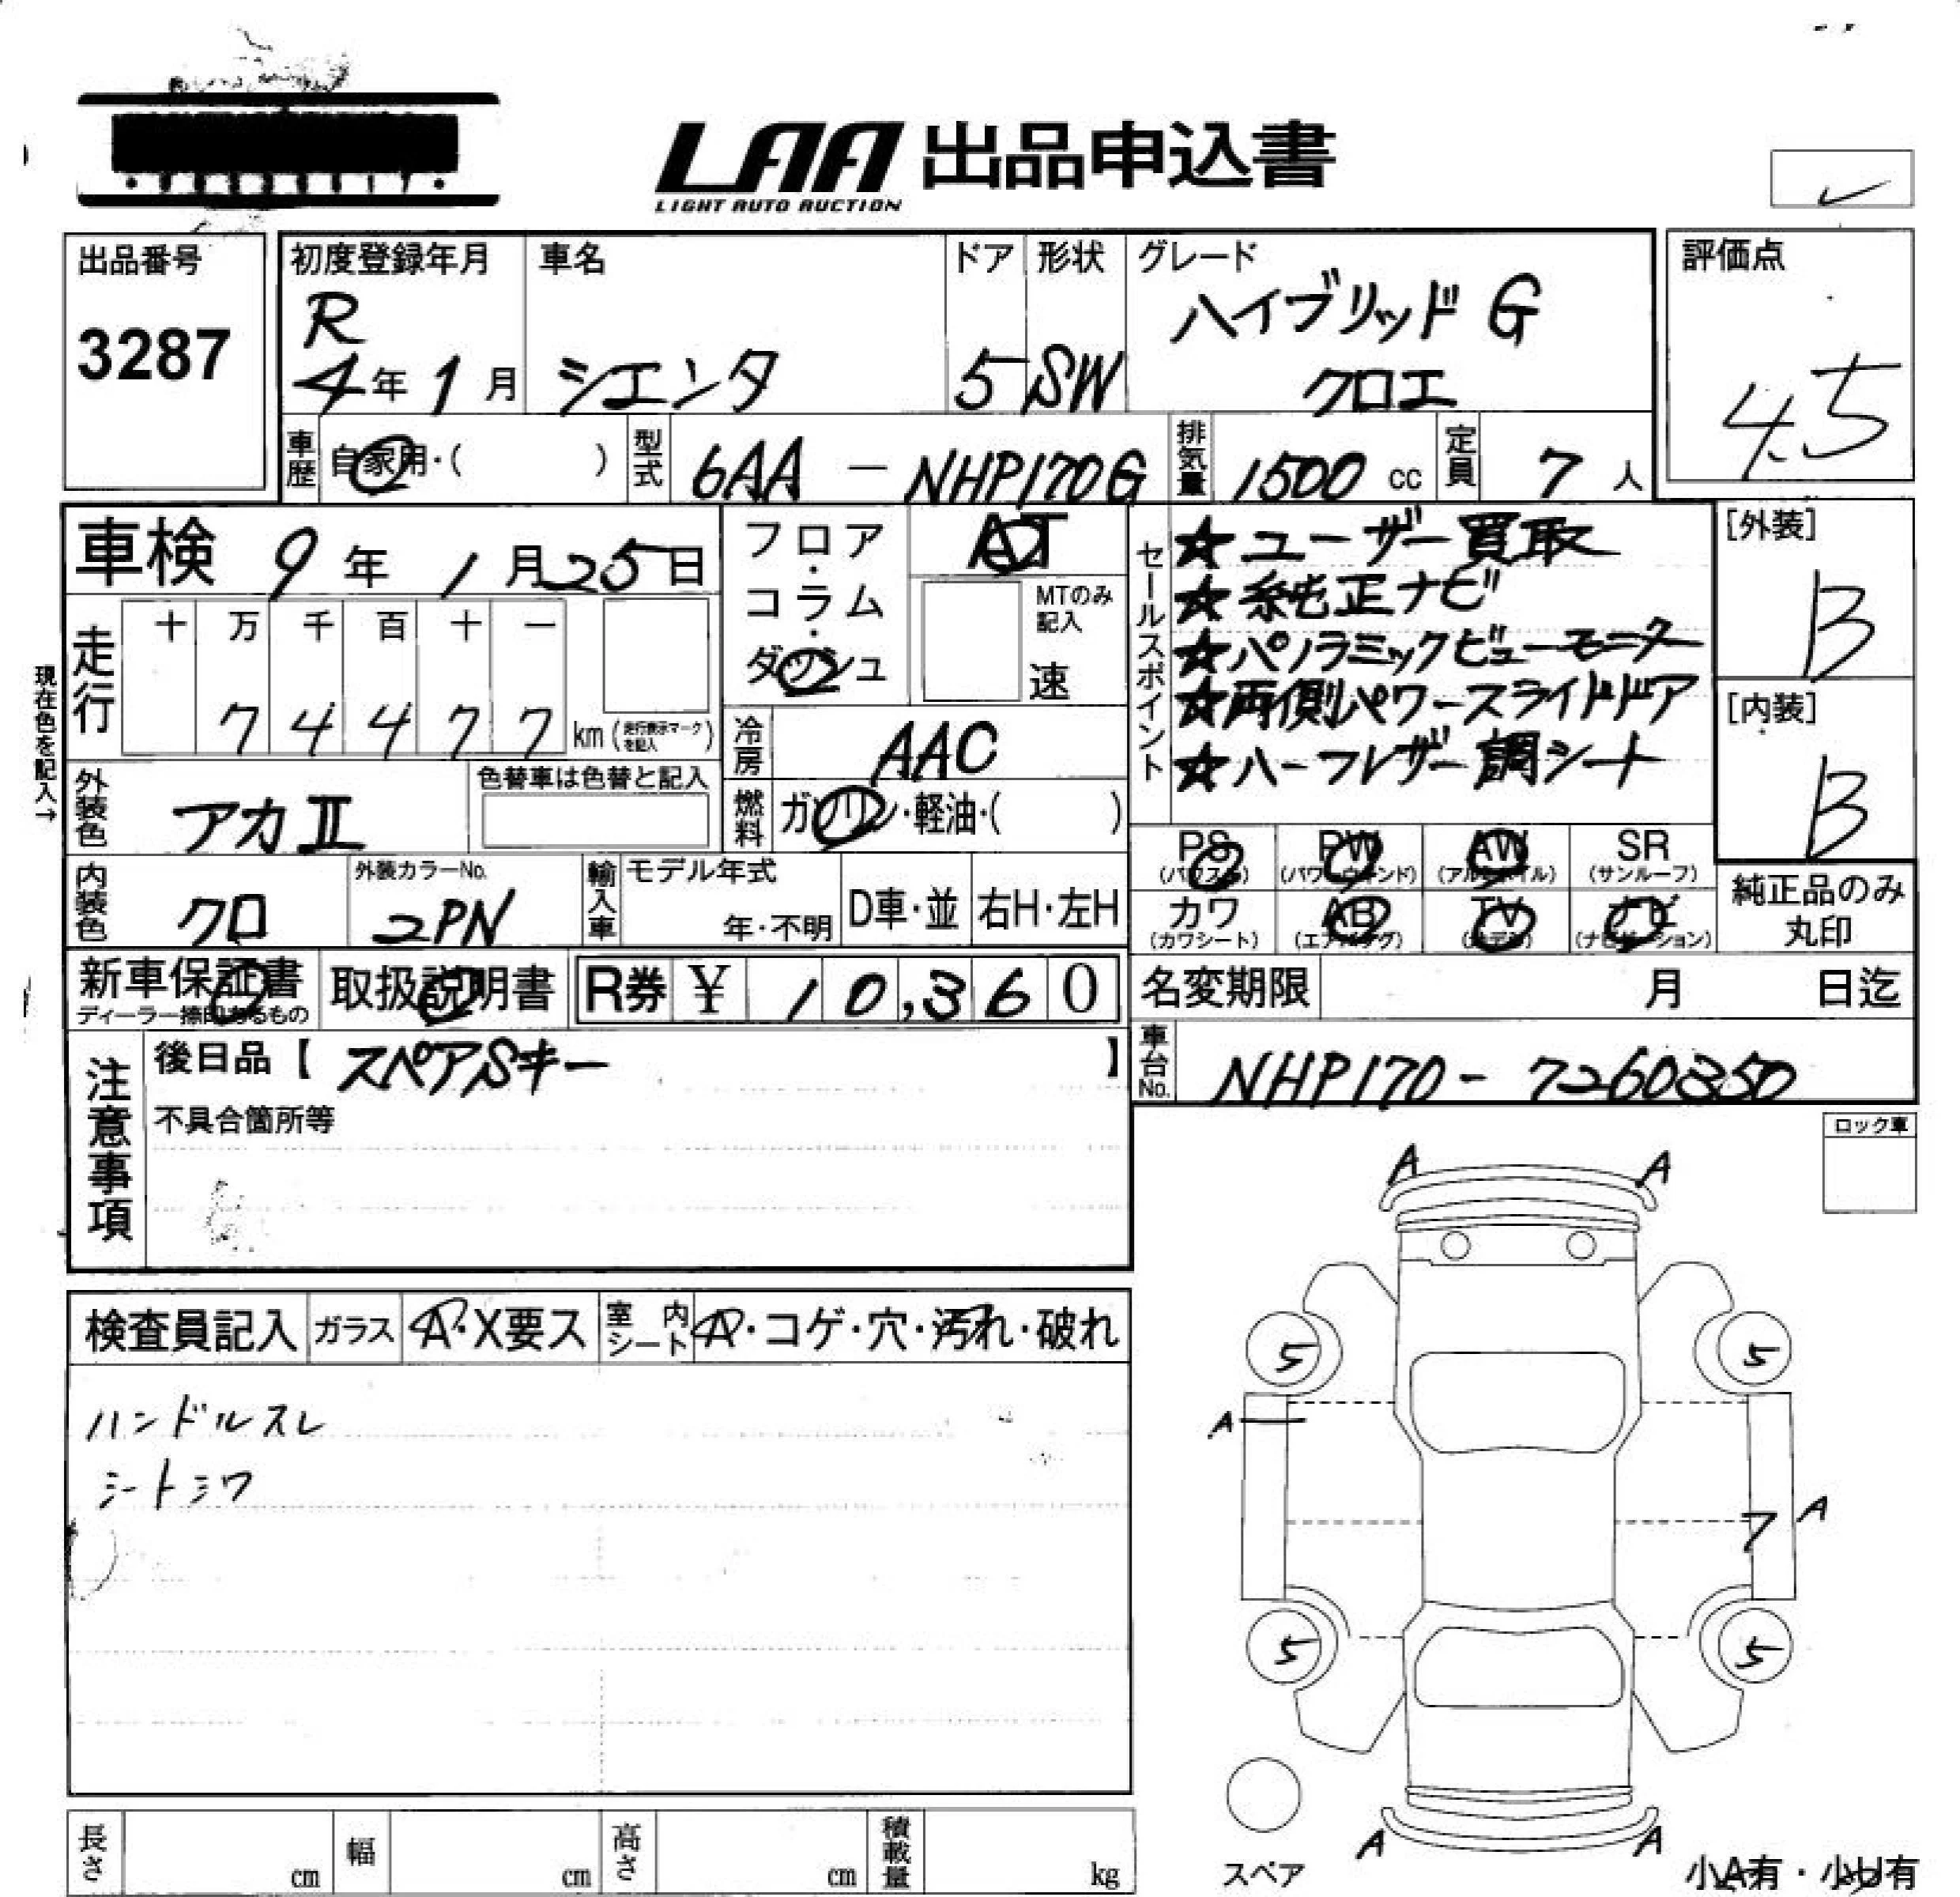 LAA 出品申込書
LIGHT AUTO AUCTION
出品番号
3287
初度登録年月
R
4年1月
車名
シエンタ
ドア
5
形状
SW
グレード
ハイブリッド G
クロエ
評価点
4.5
車歴 自家用・( )
型式 6AA - NHP170G
排気量 1500 cc
定員 7 人
車検 9年1月25日
現在色を記入→
走行
十 万 千 百 十 一
7 4 4 7 7 km (走行表示マークを記入)
フロア・コラム・ダッシュ
AT
MTのみ記入
速
冷房 AAC
燃料 ガソリン・軽油・( )
セールスポイント
☆ユーザー買取
☆純正ナビ
☆パノラミックビューモニター
☆両側パワースライドドア
☆ハーフレザー調シート
[外装]
B
[内装]
B
外装色 アカⅡ
色替車は色替と記入
内装色 クロ
外装カラーNo.
2PN
輸入車 モデル年式
年・不明
D車・並
右H・左H
PS
(パワステ)
PW
(パワーウィンド)
AW
(アルミホイル)
SR
(サンルーフ)
カワ
(カワシート)
AB
(エアバッグ)
TV
ナビ
(ナビゲーション)
純正品のみ
丸印
新車保証書
ディーラー捺印あるもの
取扱説明書
R券 ¥ 10,360
名変期限 月 日迄
注意事項
後日品【 スペアSキー 】
不具合箇所等
車台No. NHP170-7260350
ロック車
検査員記入
ガラス A・X要ス
室内シート A・コゲ・穴・汚れ・破れ
ハンドルスレ
シートシワ
A A
5 5
A
7 A
5 5
A A
スペア
小A有・小U有
長さ cm
幅 cm
高さ cm
積載量 kg